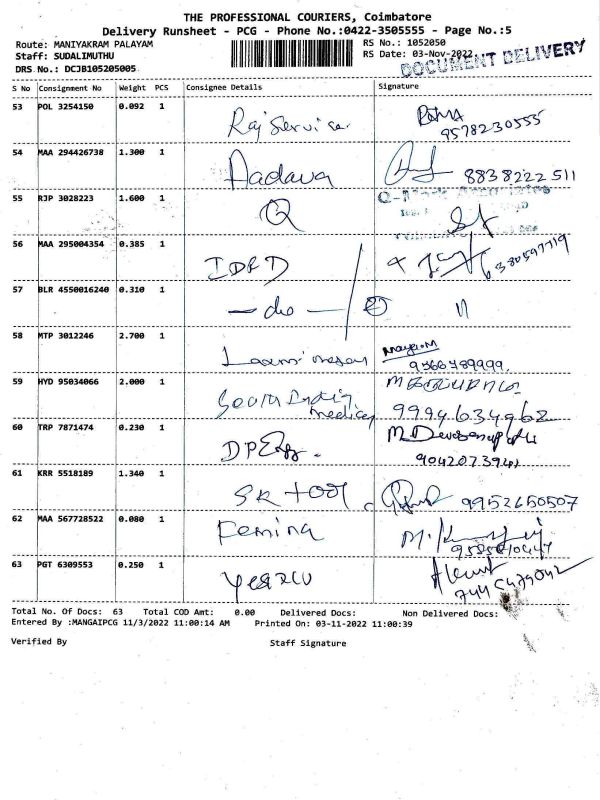 THE PROFESSIONAL COURIERS, Coimbatore
Delivery Runsheet - PCG - Phone No.:0422-3505555 - Page No.:5
Route: MANIYAKRAM PALAYAM
RS No.: 1052050
Staff: SUDALIMUTHU
RS Date: 03-Nov-2022
DOCUMENT DELIVERY
DRS No.: DCJB105205005
S No Consignment No Weight PCS Consignee Details Signature
53 POL 3254150 0.092 1 Raj Service
9578230555
54 MAA 294426738 1.300 1 Aadava 8838222511
55 RJP 3028223 1.600 1 Q
56 MAA 295004354 0.385 1 IDFD
57 BLR 4550016240 0.310 1 — do — 11
58 MTP 3012246 2.700 1 Laxmi
9366789999.
59 HYD 95034066 2.000 1 South India
medicay 9994634962
60 TRP 7871474 0.230 1
61 KRR 5518189 1.340 1 SR tool 9952650507
62 MAA 567728522 0.080 1 Femina
63 PGT 6309553 0.250 1
Total No. Of Docs: 63 Total COD Amt: 0.00 Delivered Docs: Non Delivered Docs:
Entered By :MANGAIPCG 11/3/2022 11:00:14 AM Printed On: 03-11-2022 11:00:39
Verified By Staff Signature